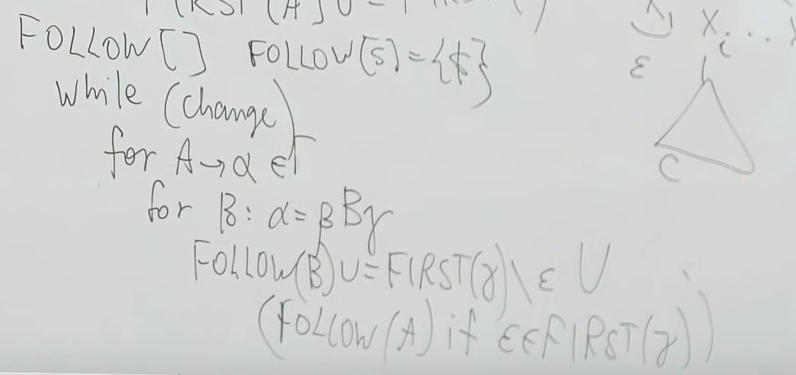 FIRST(A) U=
FOLLOW[] FOLLOW[S]={$}
while (change)
for A→α ∈ Γ
for B: α=βBγ
FOLLOW(B) U= FIRST(γ)\ε U
(FOLLOW(A) if ε∈FIRST(γ))
X₁ Xᵢ...
ε
C